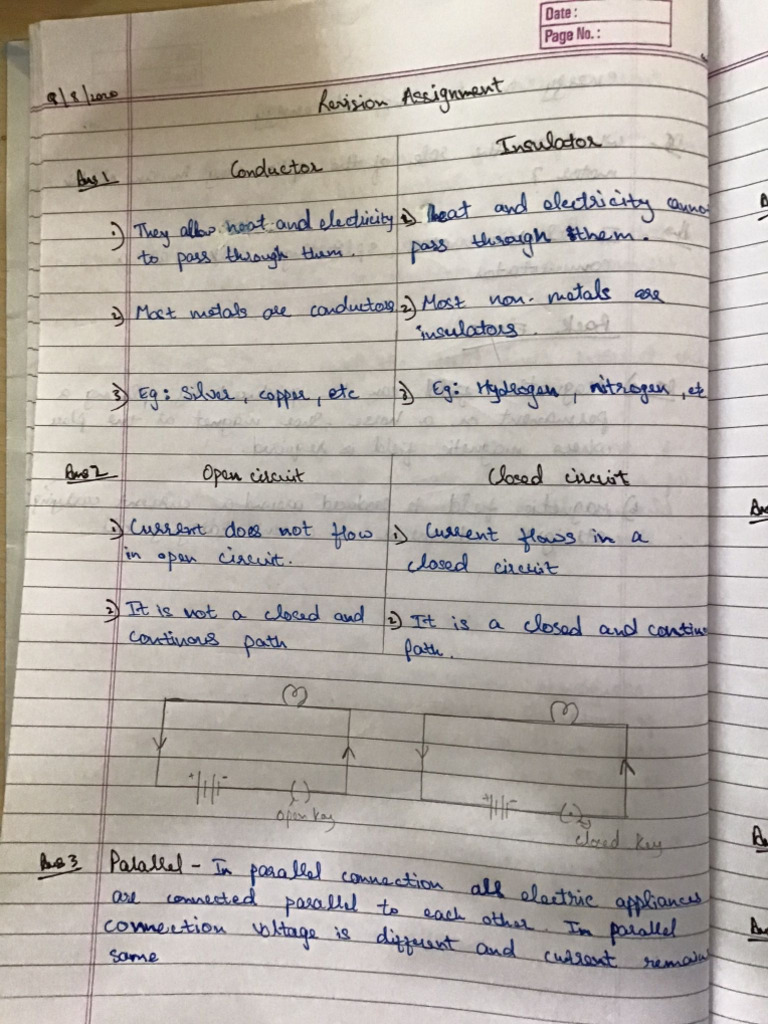 Date :
Page No. :
8/8/2020
Revision Assignment
Ans 1
Conductor
Insulator
1) They allow heat and electricity to pass through them.
1) heat and electricity canno
pass through them.
2) Most metals are conductors
2) Most non-metals are
insulators.
3) Eg: Silver, copper, etc
3) Eg: Hydrogen, nitrogen, etc
Ans 2
Open circuit
Closed circuit
1) Current does not flow
in open circuit.
1) Current flows in a
closed circuit
2) It is not a closed and
continous path
2) It is a closed and continu
path.
+ -
open key
+ -
closed key
Ans 3
Parallel - In parallel connection all electric appliances
are connected parallel to each other. In parallel
connection voltage is different and current remain
same